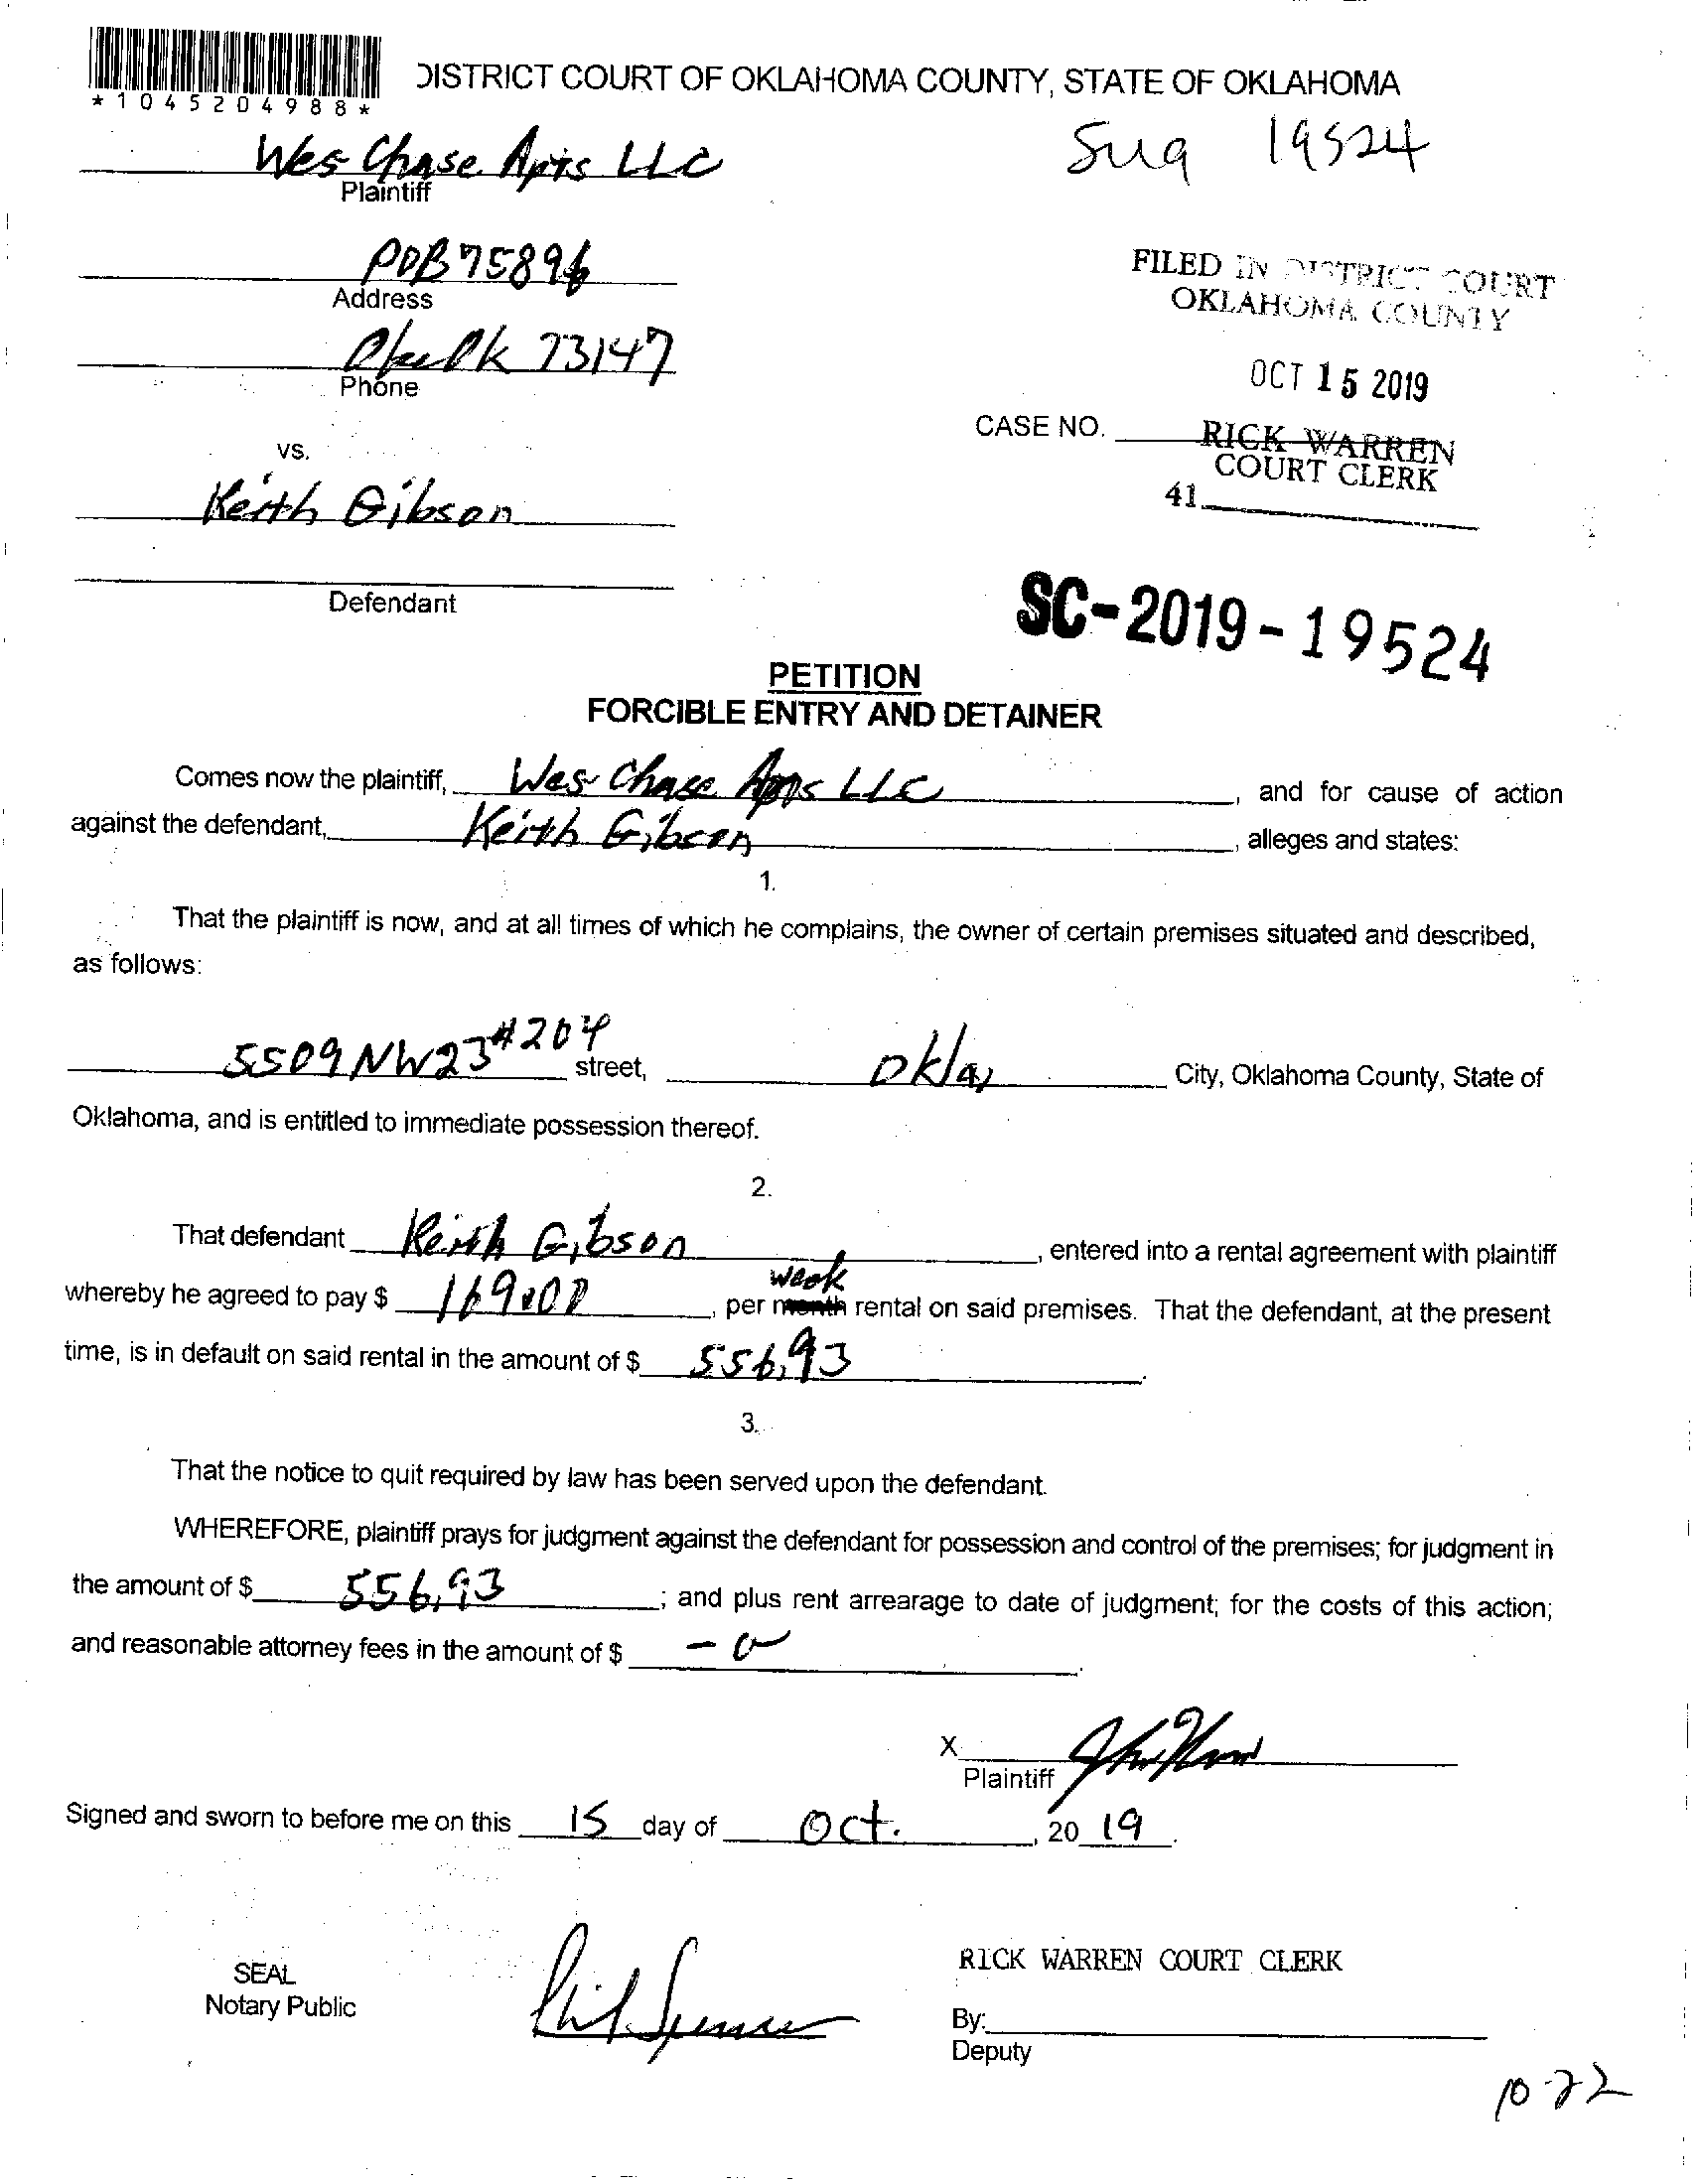 *1045204988*
DISTRICT COURT OF OKLAHOMA COUNTY, STATE OF OKLAHOMA
Wes Chase Apts LLC
Plaintiff
19524
POB 75896
Address
FILED IN DISTRICT COURT
OKLAHOMA COUNTY
73147
Phone
OCT 15 2019
CASE NO.
RICK WARREN
COURT CLERK
41
vs.
Keith Gibson
Defendant
SC-2019-19524
PETITION
FORCIBLE ENTRY AND DETAINER
Comes now the plaintiff, Wes Chase Apts LLC, and for cause of action
against the defendant, Keith Gibson, alleges and states:
1.
That the plaintiff is now, and at all times of which he complains, the owner of certain premises situated and described,
as follows:
5509 NW 23 #204 street, Okla, City, Oklahoma County, State of
Oklahoma, and is entitled to immediate possession thereof.
2.
That defendant Keith Gibson, entered into a rental agreement with plaintiff
week
whereby he agreed to pay $ 169.00, per month rental on said premises. That the defendant, at the present
time, is in default on said rental in the amount of $ 556.93.
3.
That the notice to quit required by law has been served upon the defendant.
WHEREFORE, plaintiff prays for judgment against the defendant for possession and control of the premises; for judgment in
the amount of $ 556.93; and plus rent arrearage to date of judgment; for the costs of this action;
and reasonable attorney fees in the amount of $ - 0.
X
Plaintiff
Signed and sworn to before me on this 15 day of Oct., 20 19.
SEAL
Notary Public
RICK WARREN COURT CLERK
By:
Deputy
10-22